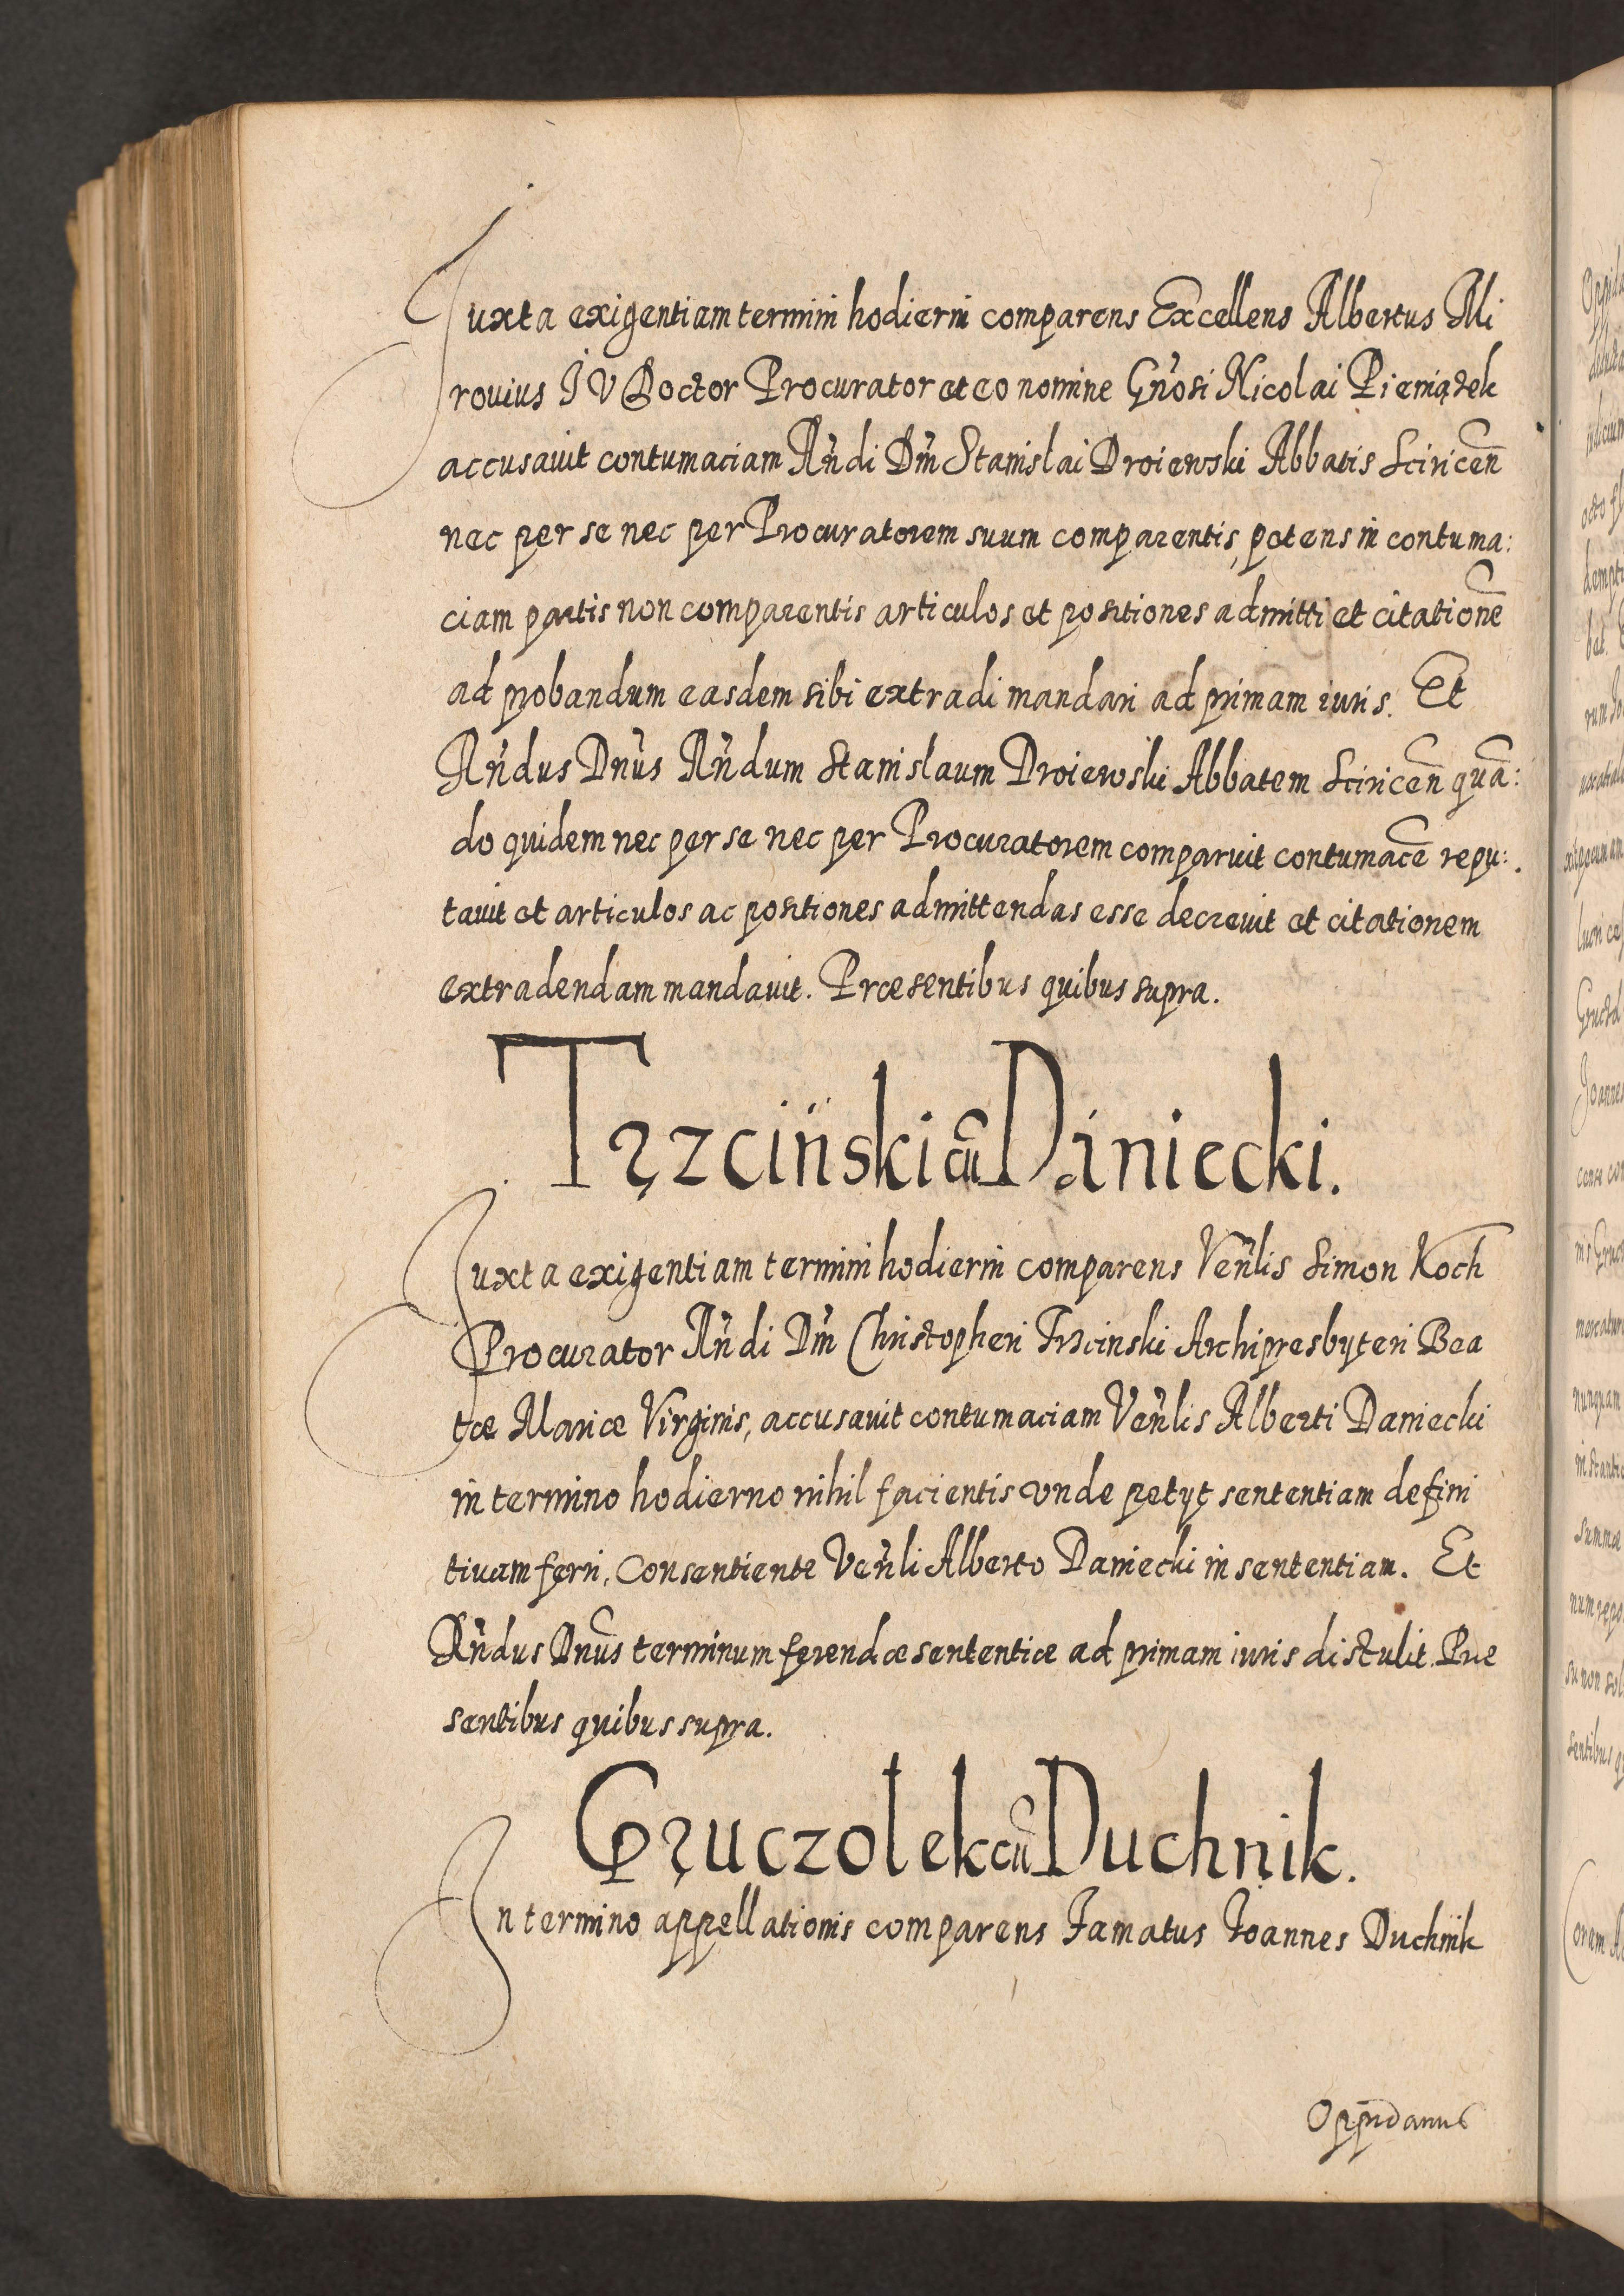 Juxta exigentiam termini hodierni comparens Excellens Albertus Mi
rovius J V Doctor Procurator et eo nomine Gñosi Nicolai Pieniążek
accusavit contumaciam Rñdi Dñi Stanislai Droiewski Abbatis Sciricen̄
nec per se nec per Procuratorem suum comparentis, petens in contuma:
ciam partis non comparentis articulos et positiones admitti et citationē
ad probandum easdem sibi extradi mandari ad primam iuris. Et
Rñdus Dnūs Rñdum Stanislaum Droiewski Abbatem Sciricen̄ quā:
do quidem nec per se nec per Procuratorem comparuit contumacē repu:
tavit et articulos ac positiones admittendas esse decrevit et citationem
extradendam mandavit. Præsentibus quibus supra.
Trzciński cū Daniecki.
Juxta exigentiam termini hodierni comparens Veñlis Simon Koch
Procurator Rñdi Dñi Christopheri Trzcinski Archipresbyteri Bea
tæ Mariæ Virginis, accusavit contumaciam Veñlis Alberti Daniecki
in termino hodierno nihil facientis vnde petyt sententiam defini
tivam ferri, Consentiente Veñli Alberto Daniecki in sententiam. Et
Rñdus Dnūs terminum ferendæ sententiæ ad primam iuris distulit. Præ
sentibus quibus supra.
Gruczolek cū Duchnik.
In termino appellationis comparens Famatus Joannes Duchnik
Oppidanus